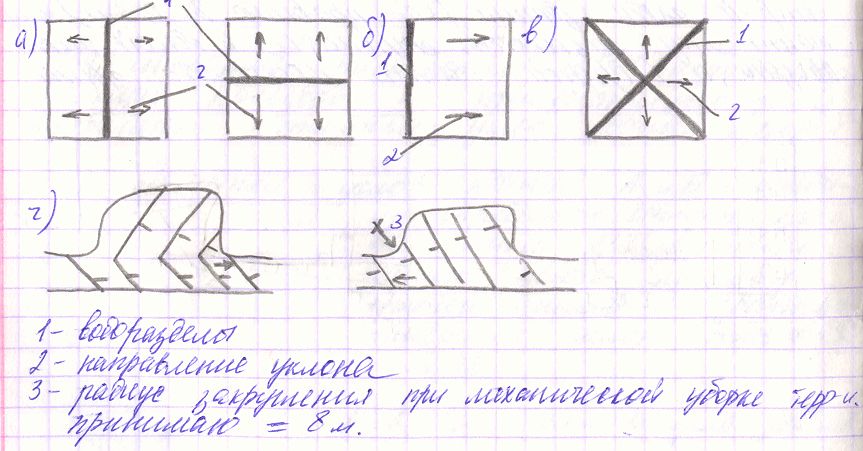 а) 1 б) в) 1
2 1 2
2
г) 3
1 - водоразделы
2 - направление уклона
3 - радиус закругления при механической уборке терри-
принимаю = 8 м.